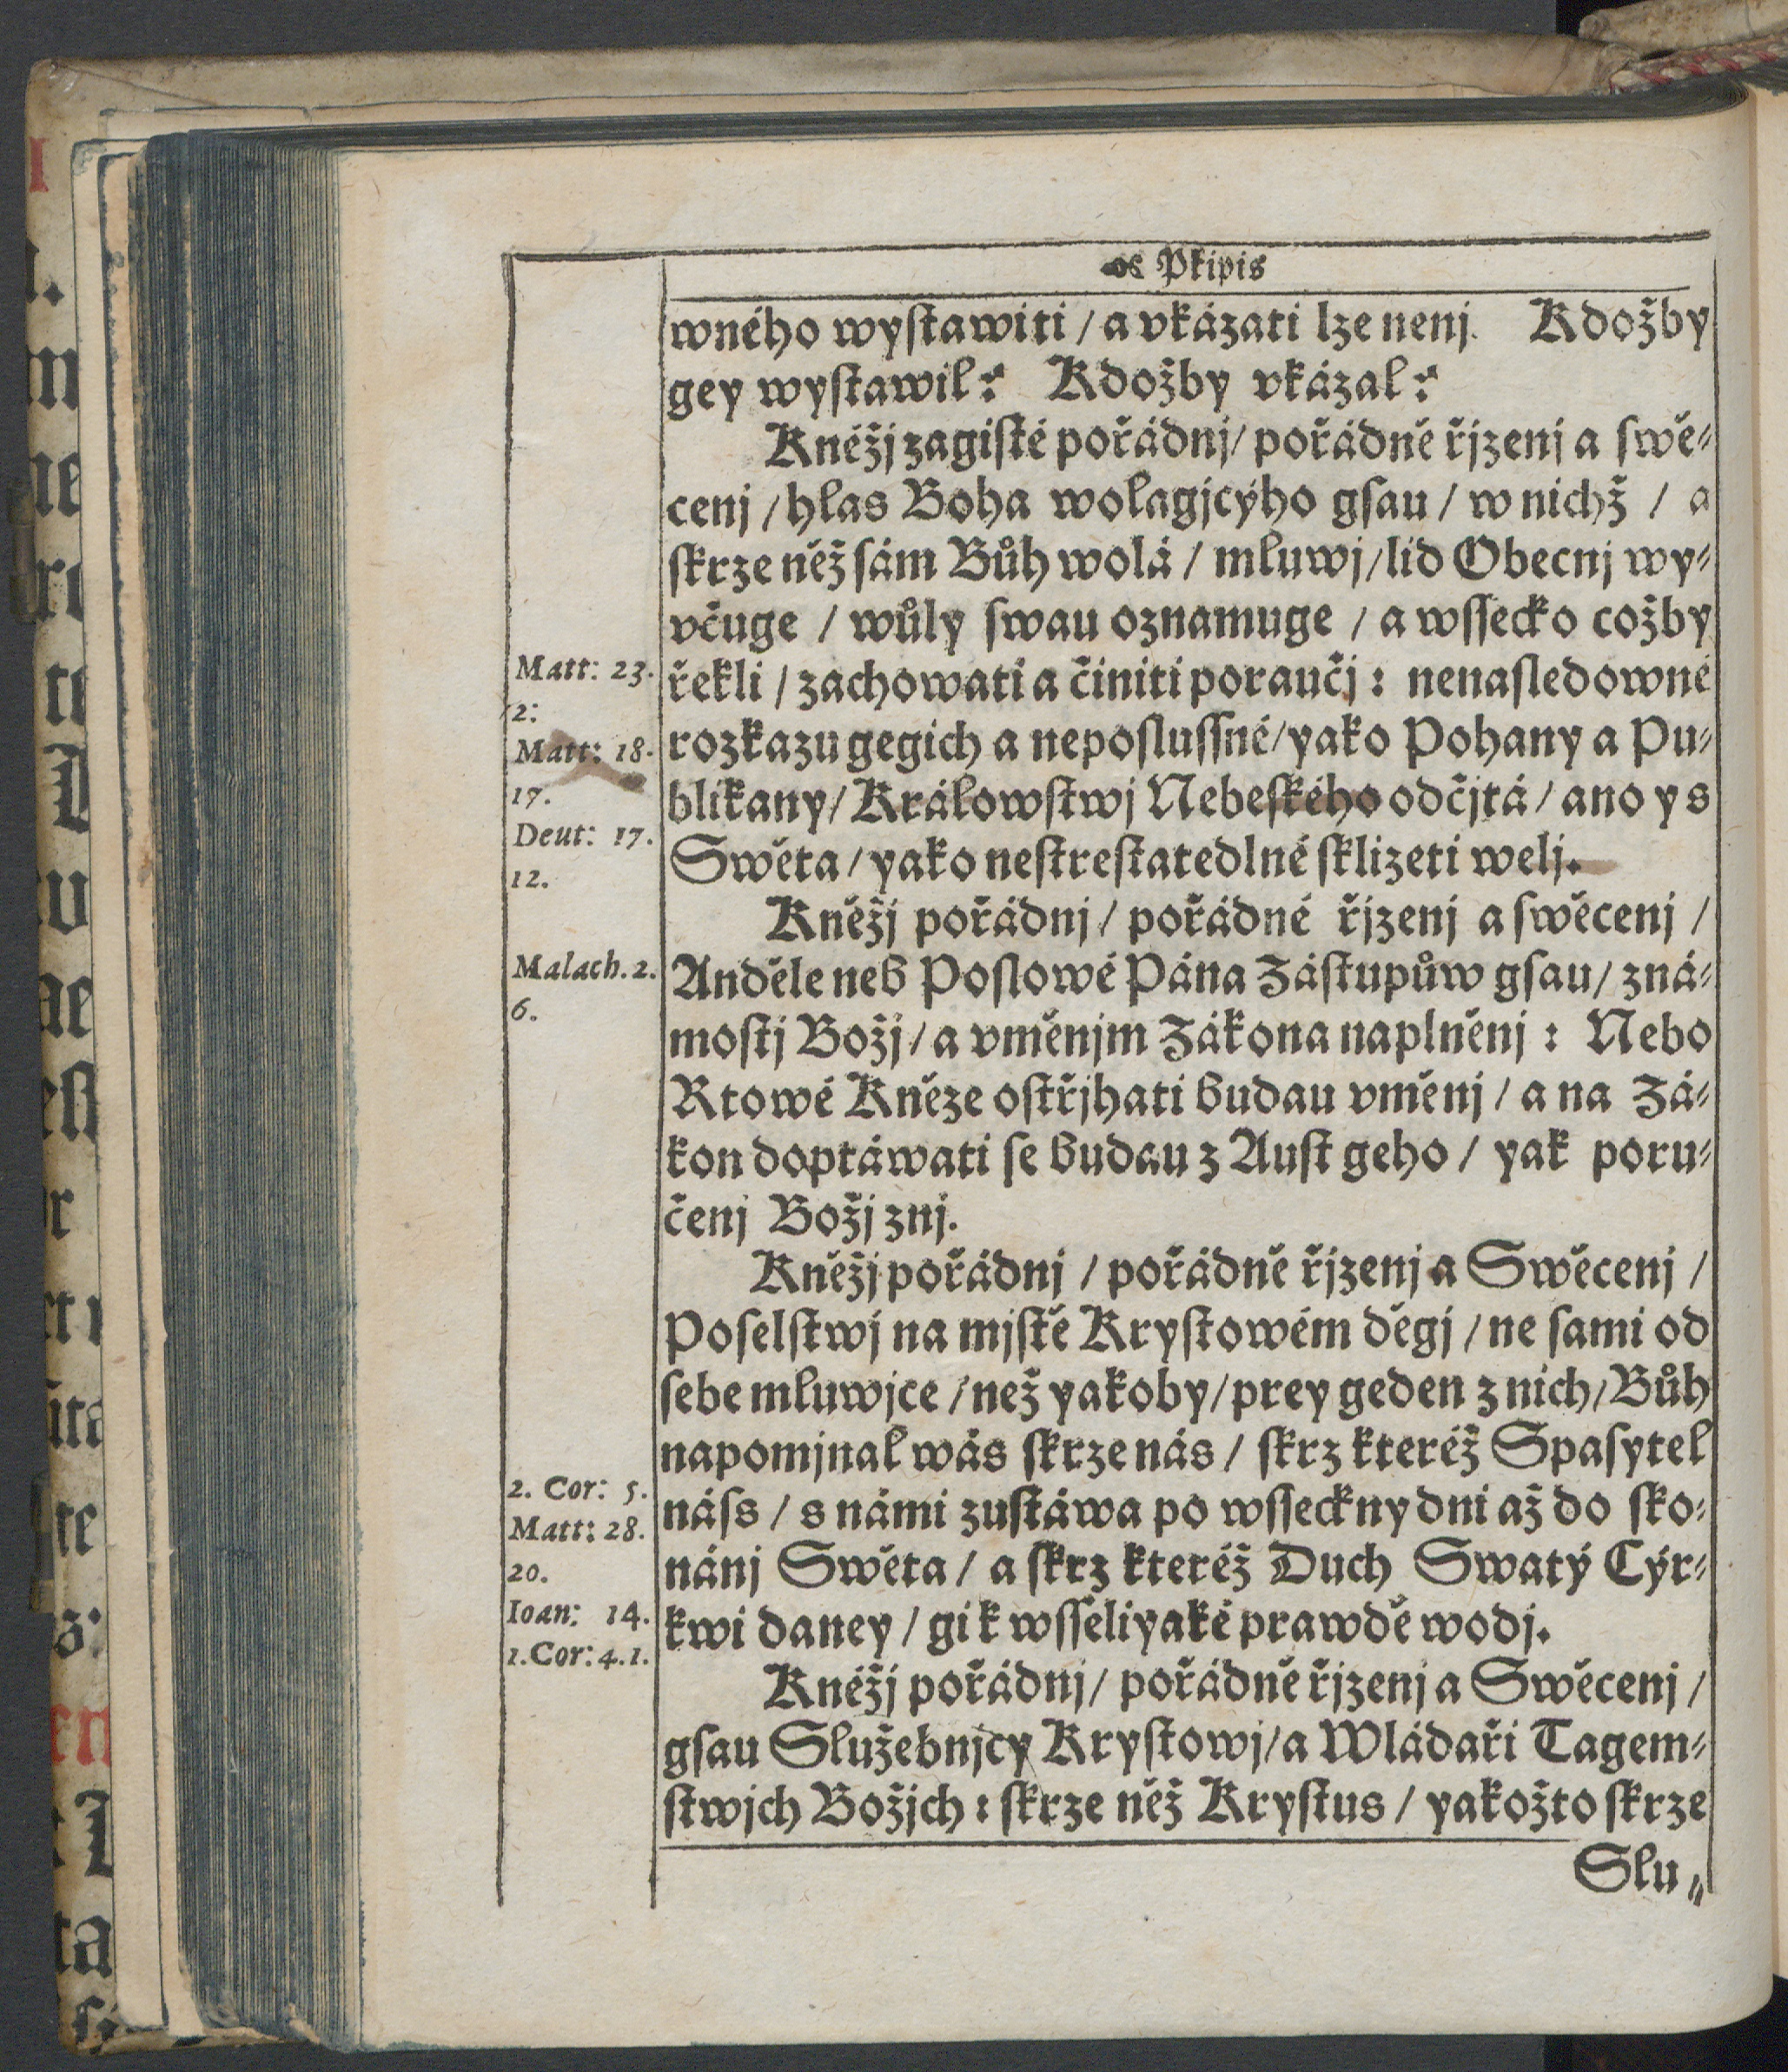 Pkipis
wného wyſtawiti / a vkázati lze nenj. Kdožby
gey wyſtawil? Kdožby vkázal?
Kněžj zagiſté pořádnj / pořádně řjzenj a ſwě⸗
cenj / hlas Boha wolagjcýho gſau / w nichž / a
ſkrze něž ſám Bůh wolá / mluwj / lid Obecnj wy⸗
včuge / wůly ſwau oznamuge / a wſſecko cožby
Matt: 23.
řekli / zachowati a činiti poraučj : nenaſledowné
2:
rozkazu gegich a nepoſluſſné / yako Pohany a Pu⸗
Matt: 18.
17.
blikany / Králowſtwj Nebeſkého odčjtá / ano y s
Deut: 17.
Swěta / yako neſtreſtatedlné ſklizeti welj.
12.
Kněžj pořádnj / pořádné řjzenj a ſwěcenj /
Malach. 2.
Anděle neb Poſlowé Pána Záſtupůw gſau / zná⸗
6.
moſtj Božj / a vměnjm Zákona naplněnj : Nebo
Rtowé Kněze oſtřjhati budau vměnj / a na Zá⸗
kon doptáwati ſe budau z Auſt geho / yak poru⸗
čenj Božj znj.
Kněžj pořádnj / pořádně řjzenj a Swěcenj /
Poſelſtwj na mjſtě Kryſtowém děgj / ne ſami od
ſebe mluwjce / než yakoby / prey geden z nich / Bůh
napomjnal wás ſkrze nás / ſkrz kteréž Spaſytel
2. Cor: 5.
náſs / s námi zuſtáwa po wſſeckny dni až do ſko⸗
Matt: 28.
20.
nánj Swěta / a ſkrz kteréž Duch Swatý Cýr⸗
Ioan: 14.
kwi daney / gi k wſſeliyaké prawdě wodj.
1. Cor: 4. 1.
Kněžj pořádnj / pořádně řjzenj a Swěcenj /
gſau Služebnjcy Kryſtowj / a Wládaři Tagem⸗
ſtwjch Božjch : ſkrze něž Kryſtus / yakožto ſkrze
Slu⸗